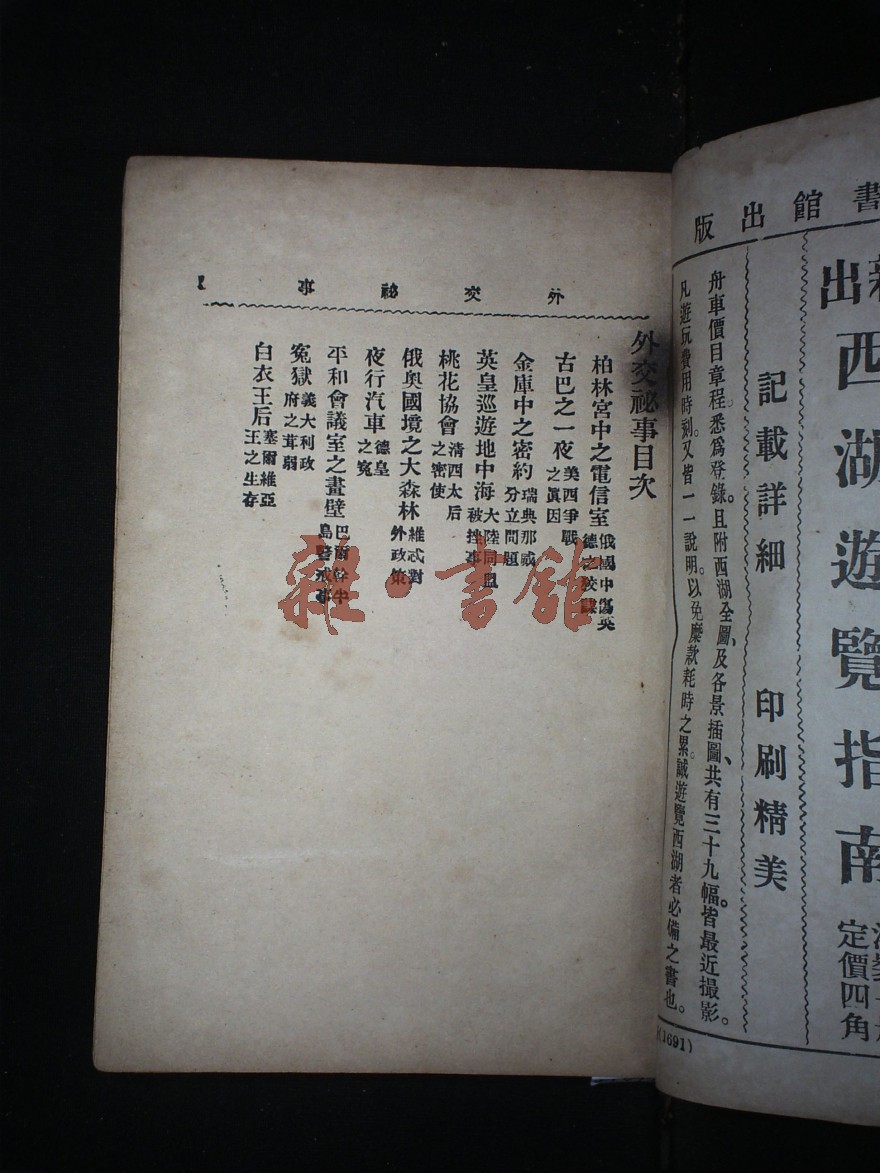 書館出版
新出西湖遊覽指南
定價四角
記載詳細　印刷精美
舟車價目章程。悉爲登錄。且附西湖全圖、及各景插圖、共有三十九幅。皆最近撮影。
凡遊玩費用時刻。又皆一一說明。以免糜款耗時之累。誠遊覽西湖者必備之書也。
(1691)
外交祕事
外交祕事目次
柏林宮中之電信室　俄國中傷英德之狡謀
古巴之一夜　美西爭戰之眞因
金庫中之密約　瑞典那威分立問題
英皇巡遊地中海　大陸同盟被挫事
桃花協會　清西太后之密使
俄奧國境之大森林　維忒對外政策
夜行汽車　德皇之寃
平和會議室之畫壁　巴爾幹半島警戒事
寃獄　義大利政府之茸弱
白衣王后　塞爾維亞王之生存
雜·書館